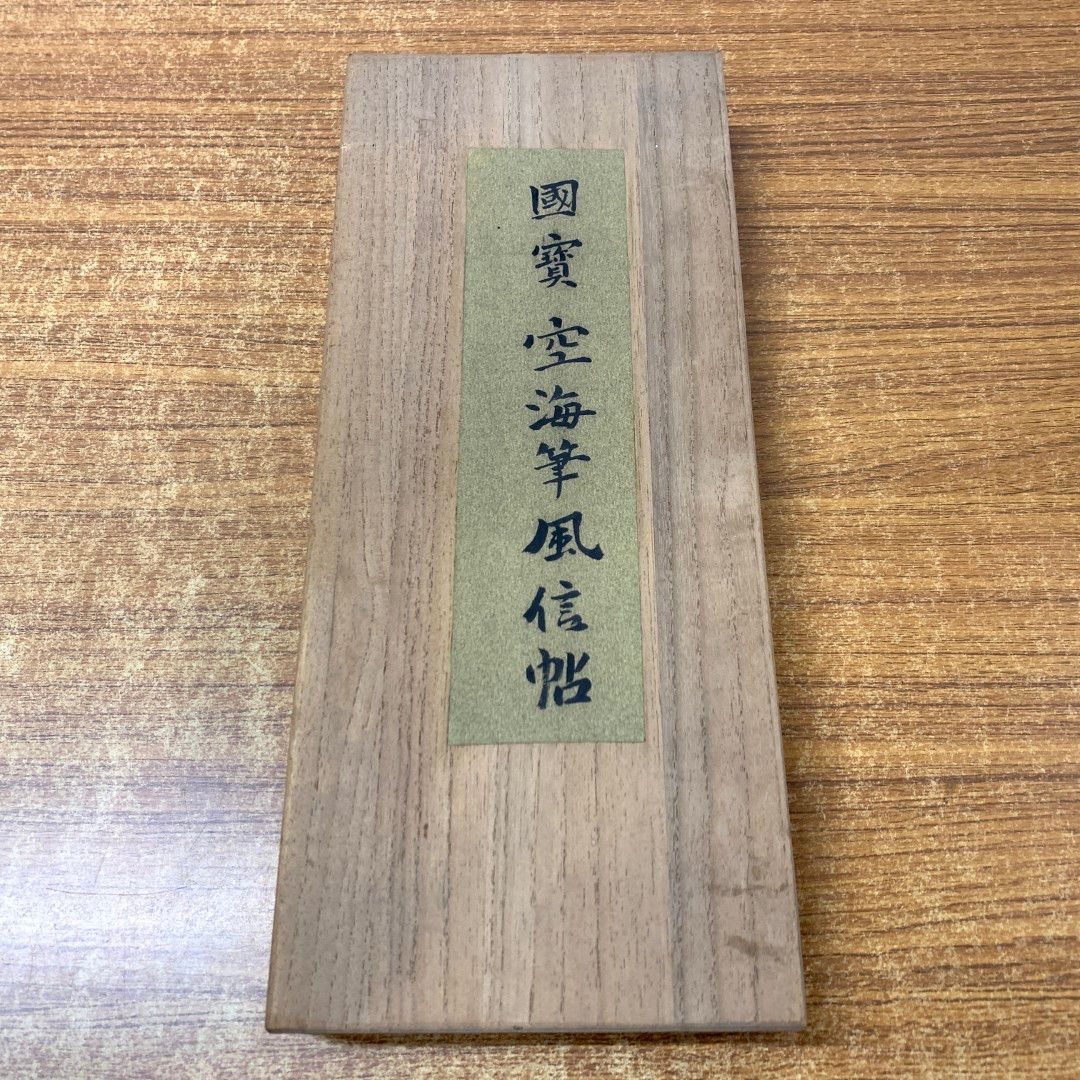 國寶 空海筆風信帖